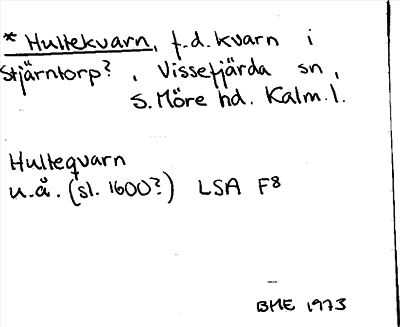 * Hultekvarn, f.d. kvarn i
Stjärntorp?, Vissefjärda sn,
S. Möre hd. Kalm. l.
Hulteqvarn
u.å. (sl. 1600?) LSA F8
BME 1973